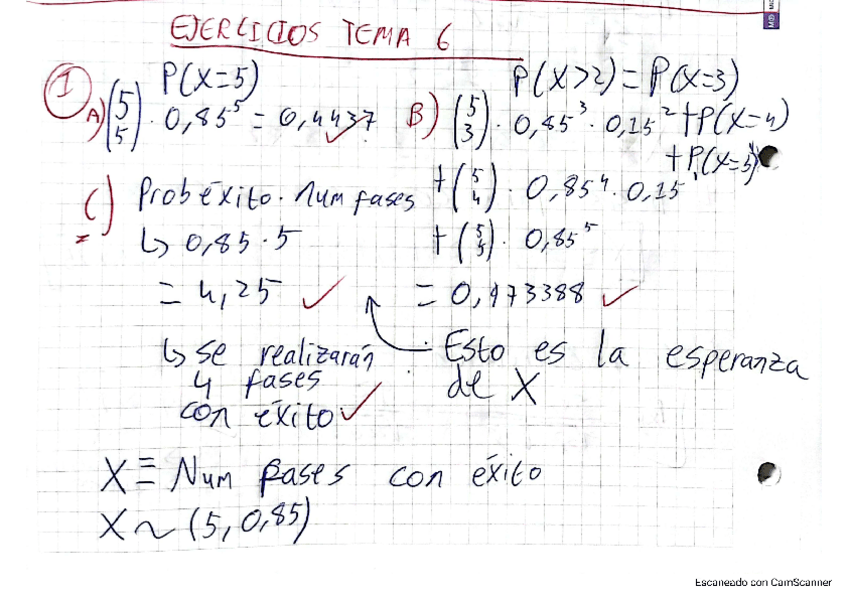 EJERCICIOS TEMA 6
① P(X=5)
A) (5 5) · 0,85⁵ = 0,4437
B) P(X>2) = P(X=3)
(5 3) · 0,85³ · 0,15² + P(X=4)
+ P(X=5)
+ (5 4) · 0,85⁴ · 0,15¹
+ (5 5) · 0,85⁵
= 0,973388
C) Prob éxito · Num fases
↳ 0,85 · 5
= 4,25
↳ se realizarán
4 fases
con éxito
Esto es la esperanza
de X
X ≡ Num fases con éxito
X ~ (5, 0,85)
Escaneado con CamScanner